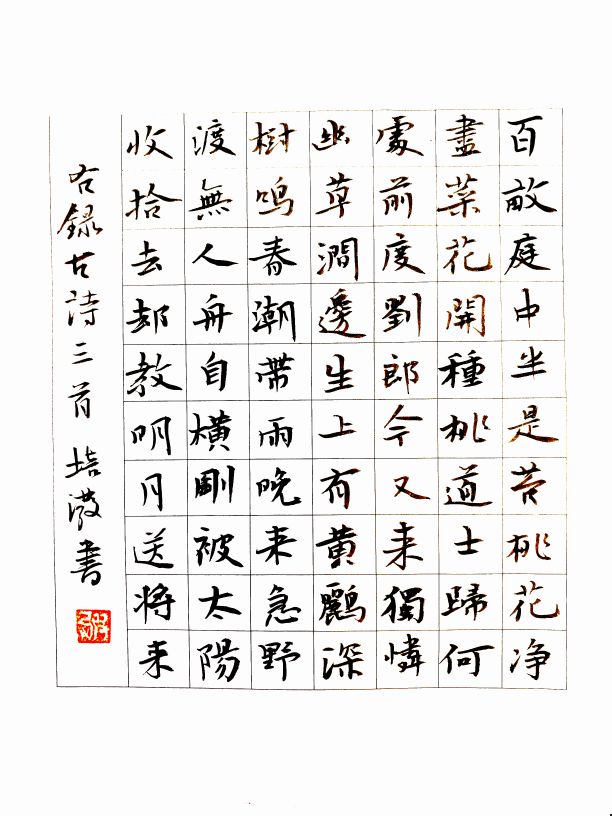 百畝庭中半是苔桃花净
盡菜花開種桃道士歸何
處前度劉郎今又来獨憐
幽草澗邊生上有黄鸝深
樹鳴春潮帶雨晚来急野
渡無人舟自横剛被太陽
收拾去却教明月送将来
右録古詩三首 培書